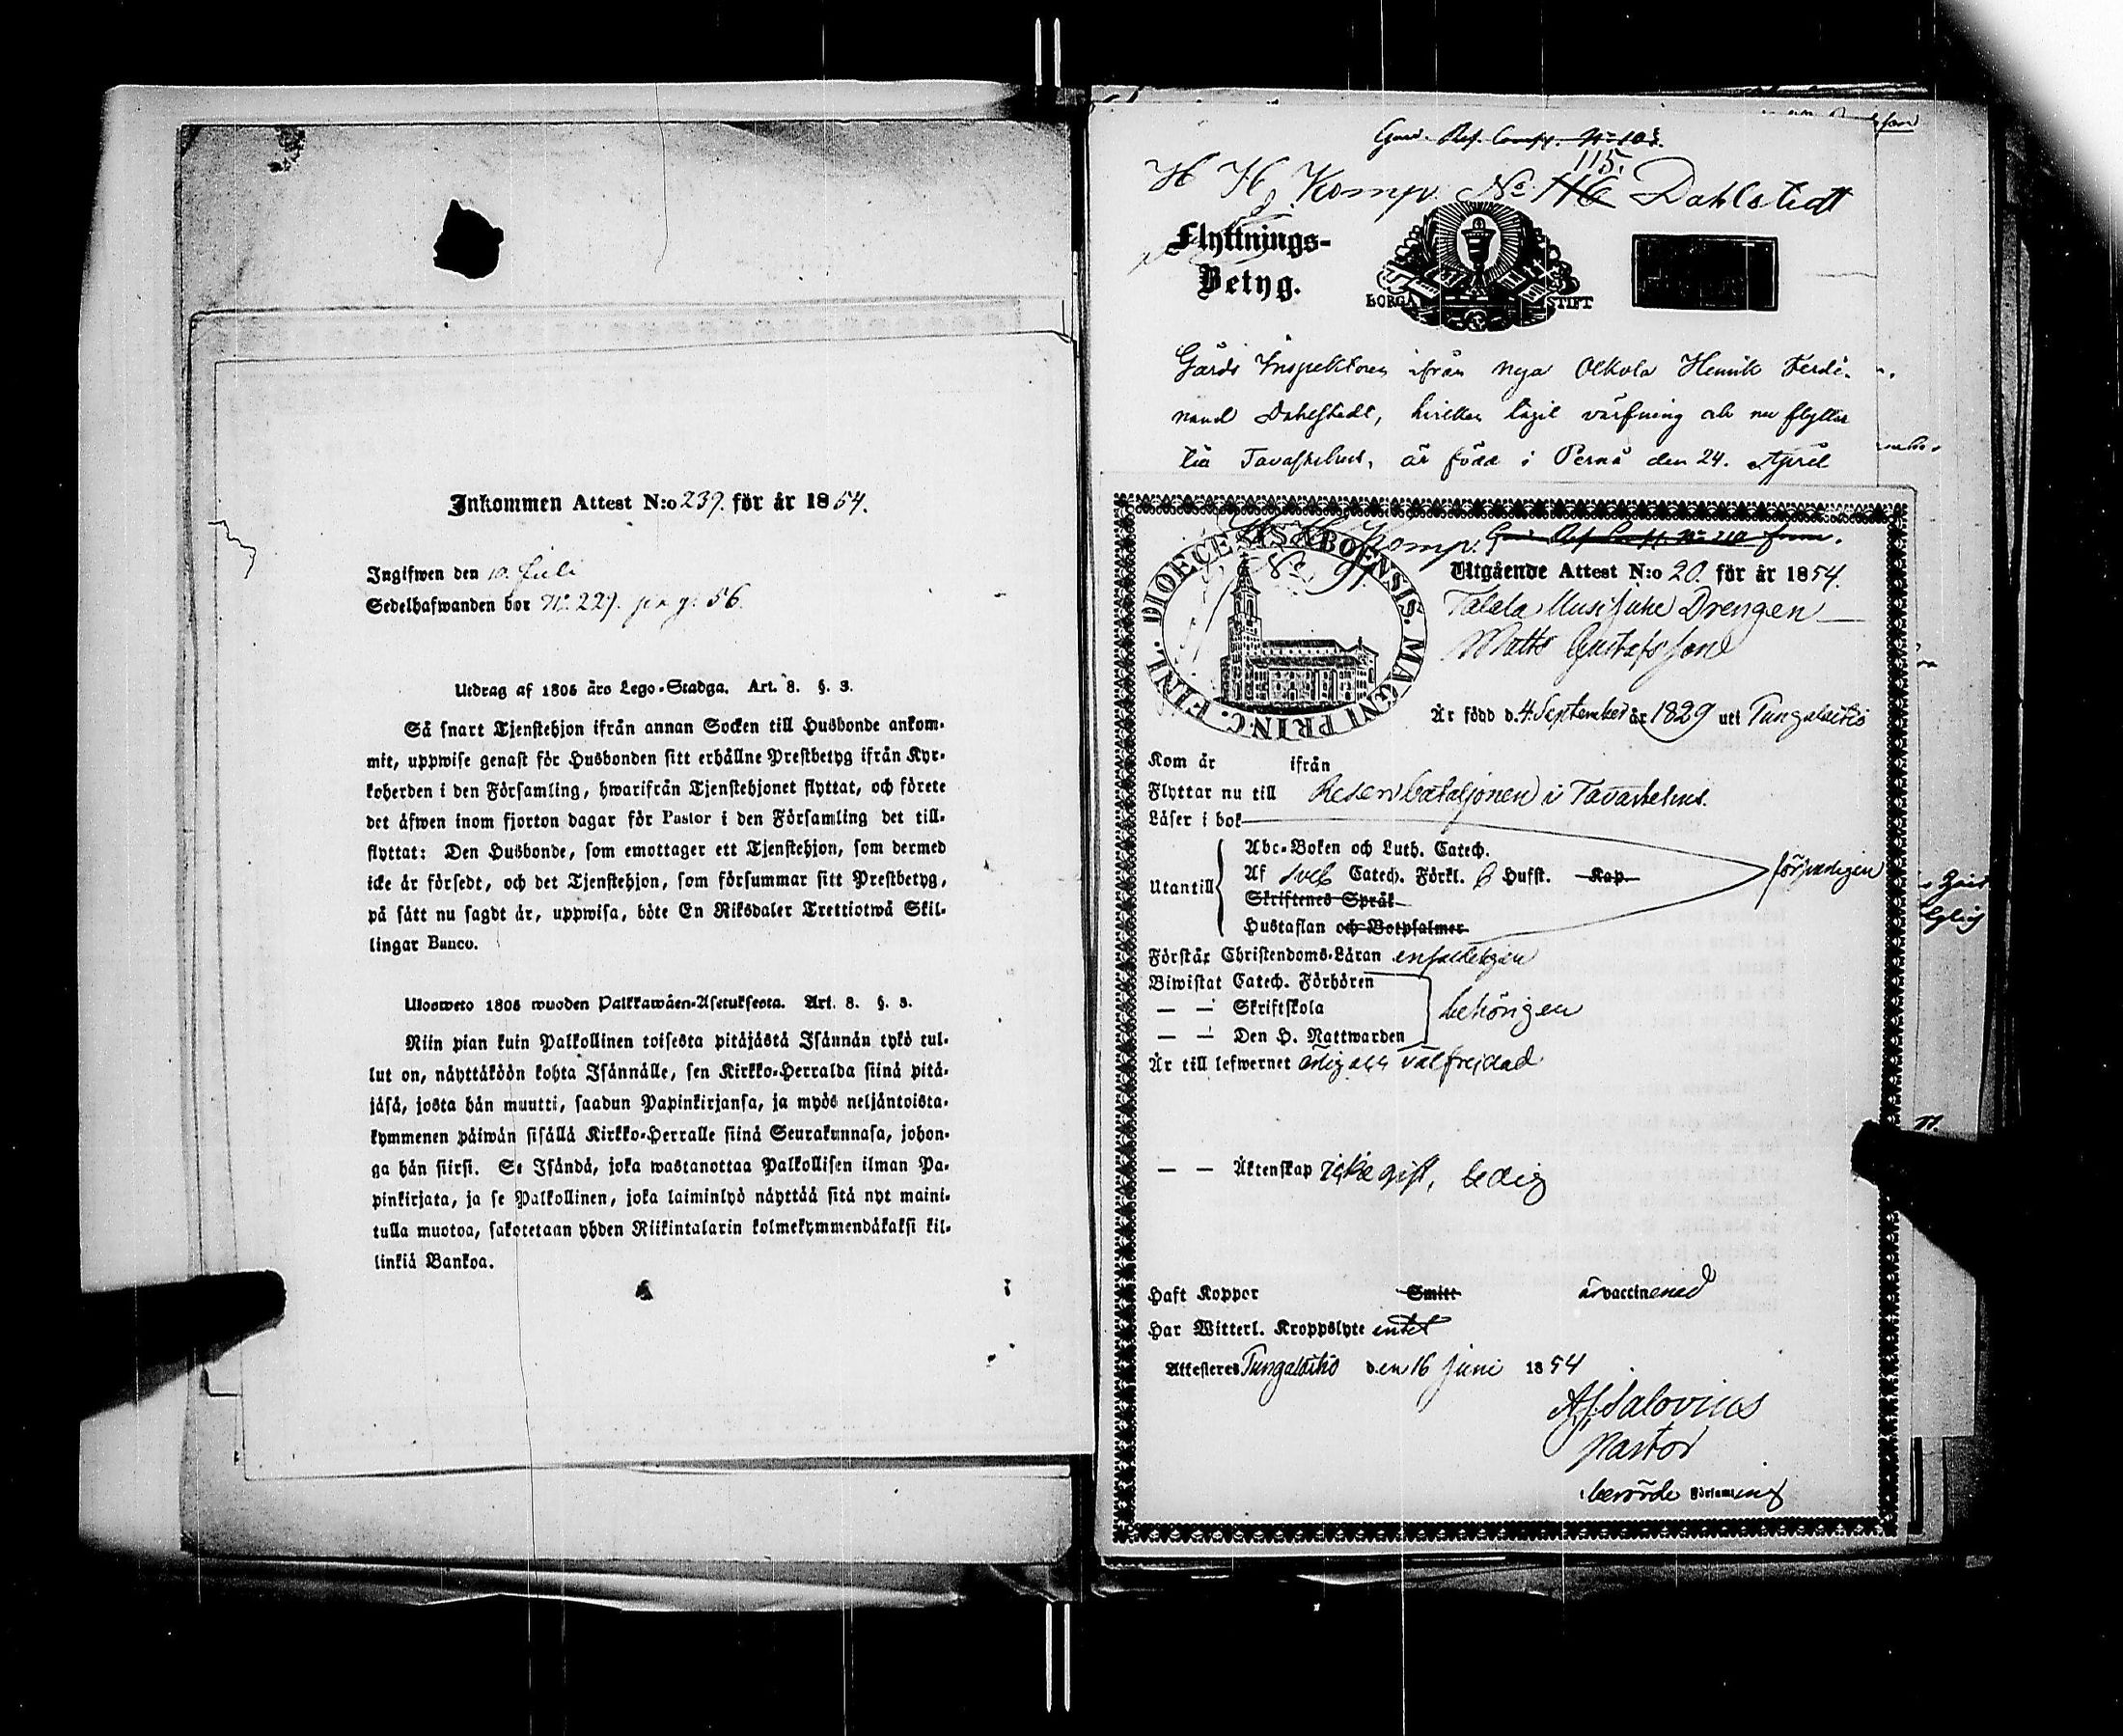 Inkommen Attest N:o 239. för år 1854.
Ingifwen den 10. Juli
Sedelhafwanden bor N:o 227. pag. 56.
Utdrag af 1805 års Lego-Stadga. Art. 8. §. 3.
Så snart Tjenstehjon ifrån annan Socken till Husbonde ankom-
mit, uppwise genast för Husbonden sitt erhållne Prestbetyg ifrån Kyr-
koherden i den Församling, hwarifrån Tjenstehjonet flyttat, och förete
det äfwen inom fjorton dagar för Pastor i den Församling det till-
flyttat: Den Husbonde, som emottager ett Tjenstehjon, som dermed
icke är försedt, och det Tjenstehjon, som försummar sitt Prestbetyg,
på sätt nu sagdt är, uppwisa, böte En Riksdaler Trettiotwå Skil-
lingar Banco.
Ulosweto 1805 wuoden Palkkawäen-Asetuksesta. Art. 8. §. 3.
Niin pian kuin Palkollinen toisesta pitäjästä Isännän tykö tul-
lut on, näyttäköön kohta Isännälle, sen Kirkko-Herralda siinä pitä-
jäsä, josta hän muutti, saadun Papinkirjansa, ja myös neljäntoista-
kymmenen päiwän sisällä Kirkko-Herralle siinä Seurakunnasa, johon-
ga hän siirsi. Se Isändä, joka wastanottaa Palkollisen ilman Pa-
pinkirjata, ja se Palkollinen, joka laiminlyö näyttää sitä nyt maini-
tulla muotoa, sakotetaan yhden Riikintalarin kolmekymmendäkaksi kil-
linkiä Bankoa.
115.
H H Komp. No 116 Dahlstedt
Flyttnings-
Betyg.
BORGÅ STIFT
Gårds Inspektoren ifrån Nya Olkola Henrik Ferdi-
nand Dahlstedt, hvilken tagit värfning och nu flyttar
till Tavastehus, är född i Pernå den 24. April
H H Komp.
No 91.
DIOECESIS ABOENSIS. MAGNI PRINC. FINL.
Utgående Attest N:o 20. för år 1854.
Drengen
Matts Gustafsson
Är född d. 4. September år 1829 uti Tungalaitio
Kom år ifrån
Flyttar nu till Reservbataljonen i Tavastehus.
Läser i bok
Abc-Boken och Luth. Catech.
Utantill Af Sveb Catech. Förkl. 6 Hufst. Kap. försvarligen
Skriftenes Språk
Hustaflan och Botpsalmer
Förstår Christendoms-Läran enfaldigen
Biwistat Catech. Förhören
— — Skriftskola behörigen
— — Den H. Nattwarden
Är till lefwernet ärlig och välfrejdad
— — Äktenskap icke gift, ledig
Haft Koppor Smitt är vaccinerad
Har Witterl. Kroppslyte intet
Attesteres Tungalaitio den 16 Juni 1854
A. J. Salovius
Pastor
i berörde Församling